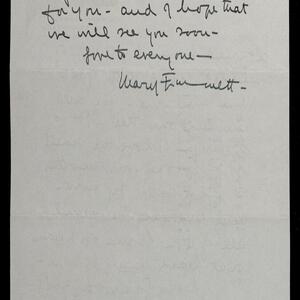 for you - and I hope that
we will see you soon -
Love to everyone -
Mary